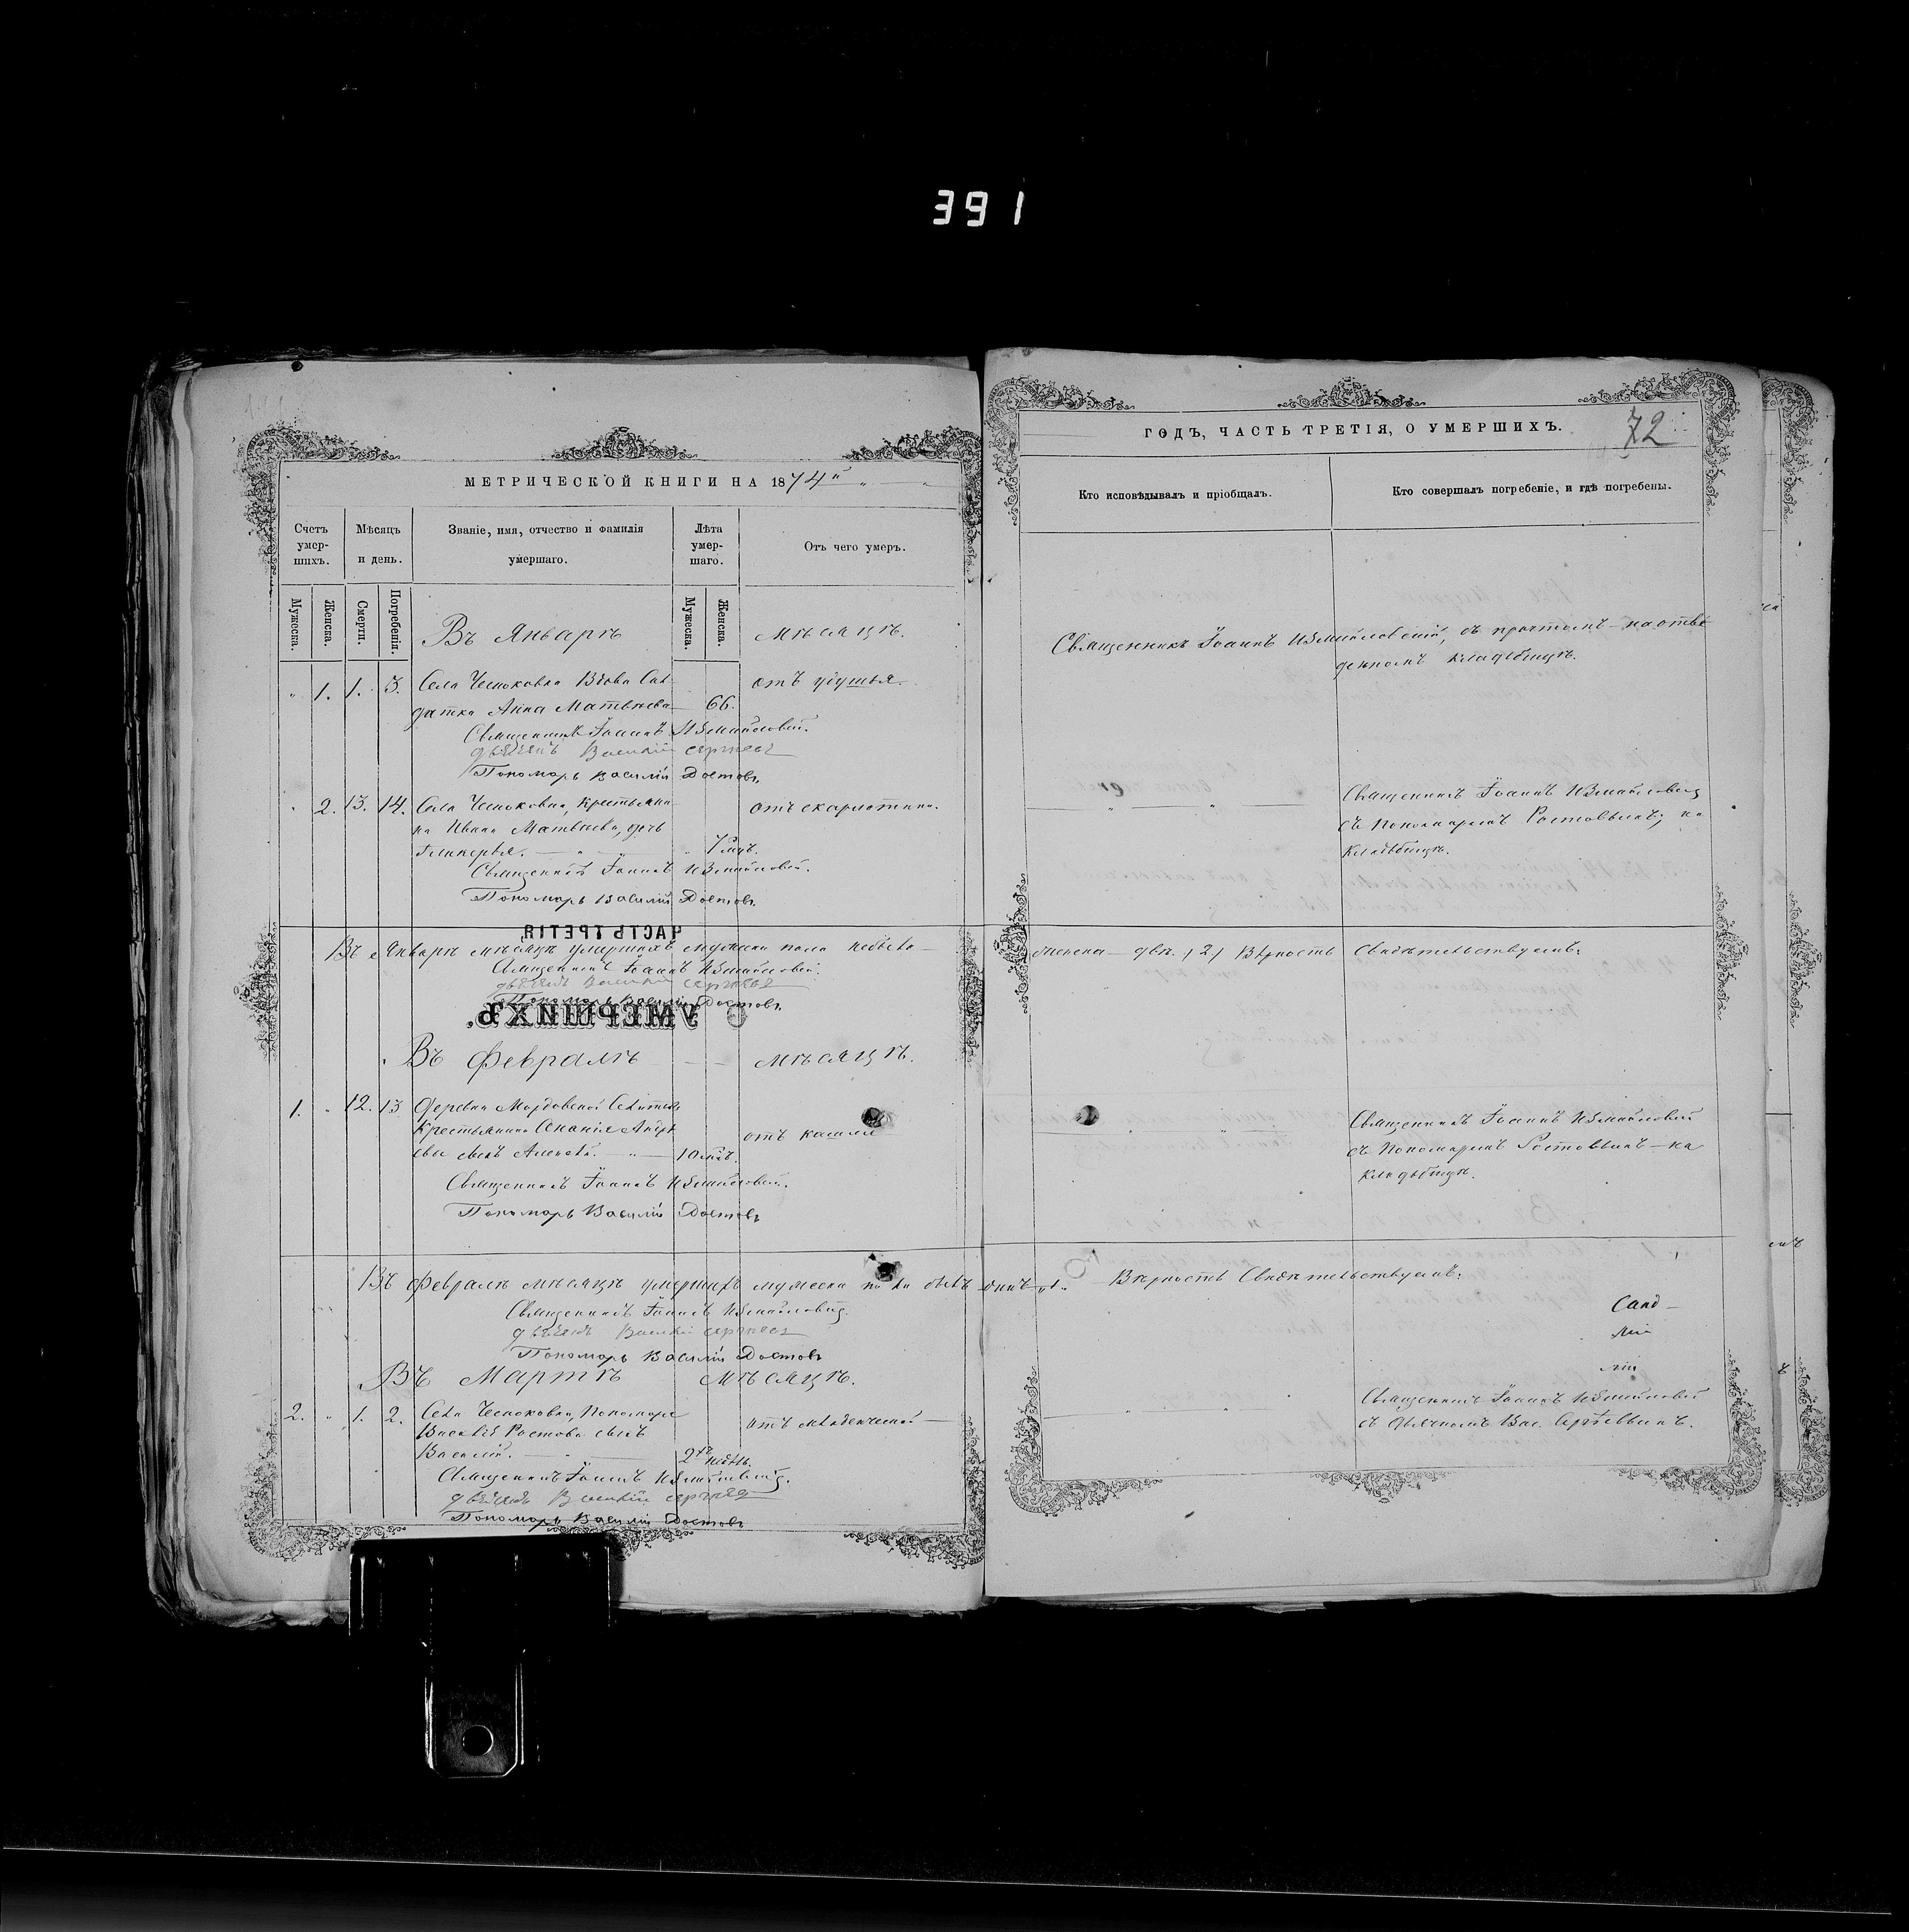 391
МЕТРИЧЕСКОЙ КНИГИ НА 1874й
Счетъ умершихъ.
Мѣсяцъ и день.
Званіе, имя, отчество и фамилія умершаго.
Лѣта умершаго.
Отъ чего умеръ.
Мужеска.
Женска.
Смерти.
Погребенія.
Мужеска.
Женска.
Въ Январѣ мѣсяцѣ.
1. 1. 3. Села Чесноковка Вдова Сол- отъ удушья.
датка Анна Матвѣева 66.
Священникъ Іоаннъ Измайловскій.
Дьячекъ Василій Сергѣевъ
Пономарь Василій Ростовъ
2. 13. 14. Села Чесноковка, крестьяни- отъ скарлатины.
на Ивана Матвѣева, дочь
Гликерья. 7 мѣс.
Священникъ Іоаннъ Измайловскій.
Пономарь Василій Ростовъ.
ЧАСТЬ ТРЕТІЯ
Въ Январѣ мѣсяцѣ умершихъ мужеска пола не было
Священникъ Іоаннъ Измайловскій.
Дьячекъ Василій Сергѣевъ
Пономарь Василій Ростовъ.
О УМЕРШИХЪ.
Въ Февралѣ мѣсяцѣ.
1. 12. 13 Деревни Мордовской
крестьянина Ананія Андре- отъ кашля
ева сынъ Алексѣй. 10
Священникъ Іоаннъ Измайловскій.
Пономарь Василій Ростовъ
Въ Февралѣ мѣсяцѣ умершихъ мужеска пола былъ одинъ 1.
Священникъ Іоаннъ Измайловскій.
Дьячекъ Василій Сергѣевъ
Пономарь Василій Ростовъ
Въ Мартѣ мѣсяцѣ.
2. 1. 2. Села Чесноковки, Пономаря отъ младенческой
Василія Ростова сынъ
Василій. 2хъ недѣль.
Священникъ Іоаннъ Измайловскій.
Дьячекъ Василій Сергѣевъ
Пономарь Василій Ростовъ
ГОДЪ, ЧАСТЬ ТРЕТІЯ, О УМЕРШИХЪ.
72
Кто исповѣдывалъ и пріобщалъ.
Кто совершалъ погребеніе, и гдѣ погребены.
Священникъ Іоаннъ Измайловскій, съ причтомъ на отве-
денномъ кладбищѣ.
Священникъ Іоаннъ Измайловскій
съ Пономаремъ Ростовымъ, на
кладбищѣ.
женска двѣ. (2) Вѣрность Свидѣтельствуемъ:
Священникъ Іоаннъ Измайловскій
съ Пономаремъ Ростовымъ на
кладбищѣ.
Вѣрность Свидѣтельствуемъ:
Священникъ Іоаннъ Измайловскій
съ Дьячкомъ Вас. Сергѣевымъ.